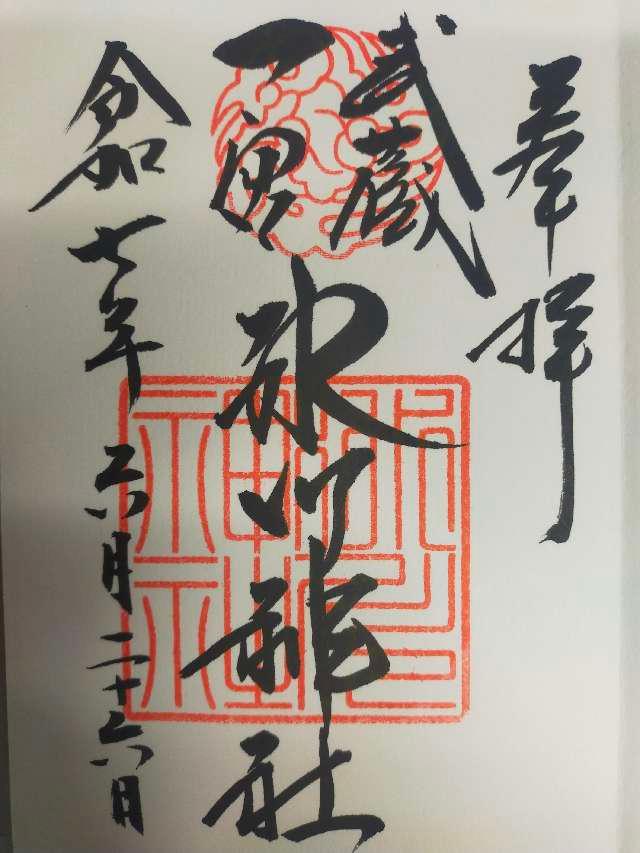 奉拝
武蔵
一宮
氷川神社
令和七年六月二十六日